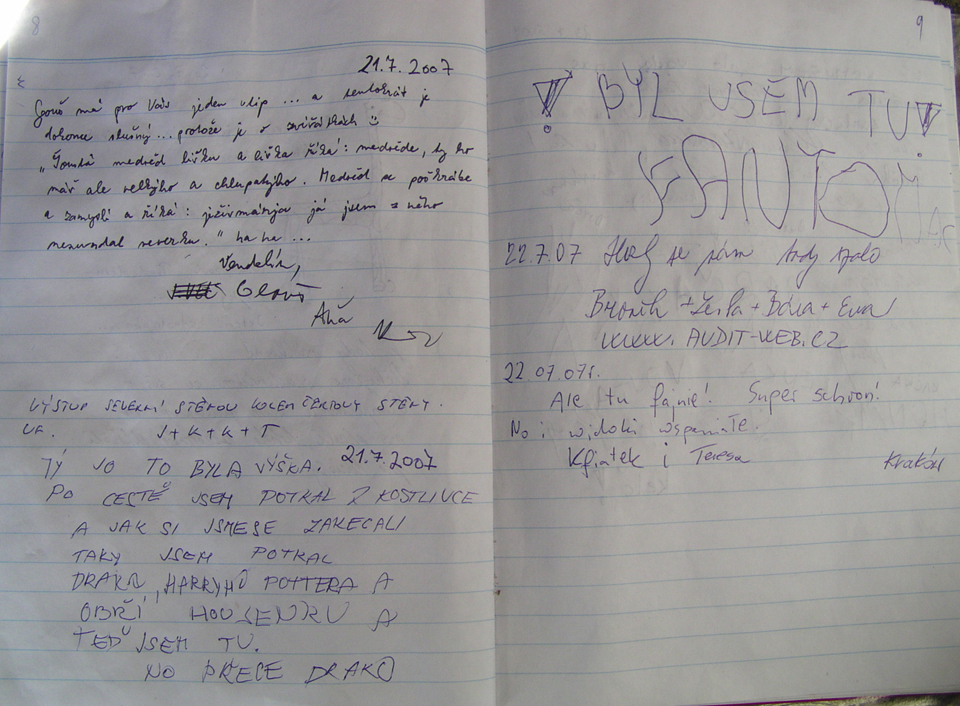 8
21.7.2007
má pro Vás jeden vtip ... a tentokrát je
dokonce slušný ... protože je o zvířátkách
medvěd lišku a liška říká: medvěde, ty ho
máš ale velkýho a chlupatýho. Medvěd se poškrábe
a zamyslí a říká: já jsem z něho
nesundal veverku." ha ha ...
Vendelín,
Áňa
VÝSTUP SEVERNÍ STĚNOU KOLEM ČERTOVY STĚNY.
UF. J + K + K + T
TÝ JO TO BYLA VÝŠKA. 21.7.2007
PO CESTĚ JSEM POTKAL 2 KOSTLIVCE
A JAK SI JSME SE ZAKECALI
TAKY JSEM POTKAL
DRAKA, HARRYHO POTTERA A
OBŘÍ HOUSENKU A
TEĎ JSEM TU.
NO PŘECE DRAKO
9
BYL JSEM TU
FANTOMAS
22.7.07 se nám tady
+ Lenka + Bára + Eva
WWW.AUDIT-WEB.CZ
22.07.07r.
Ale tu fajnie! Super schron!
No i widoki wspaniałe.
Kfiatek i Teresa Kraków